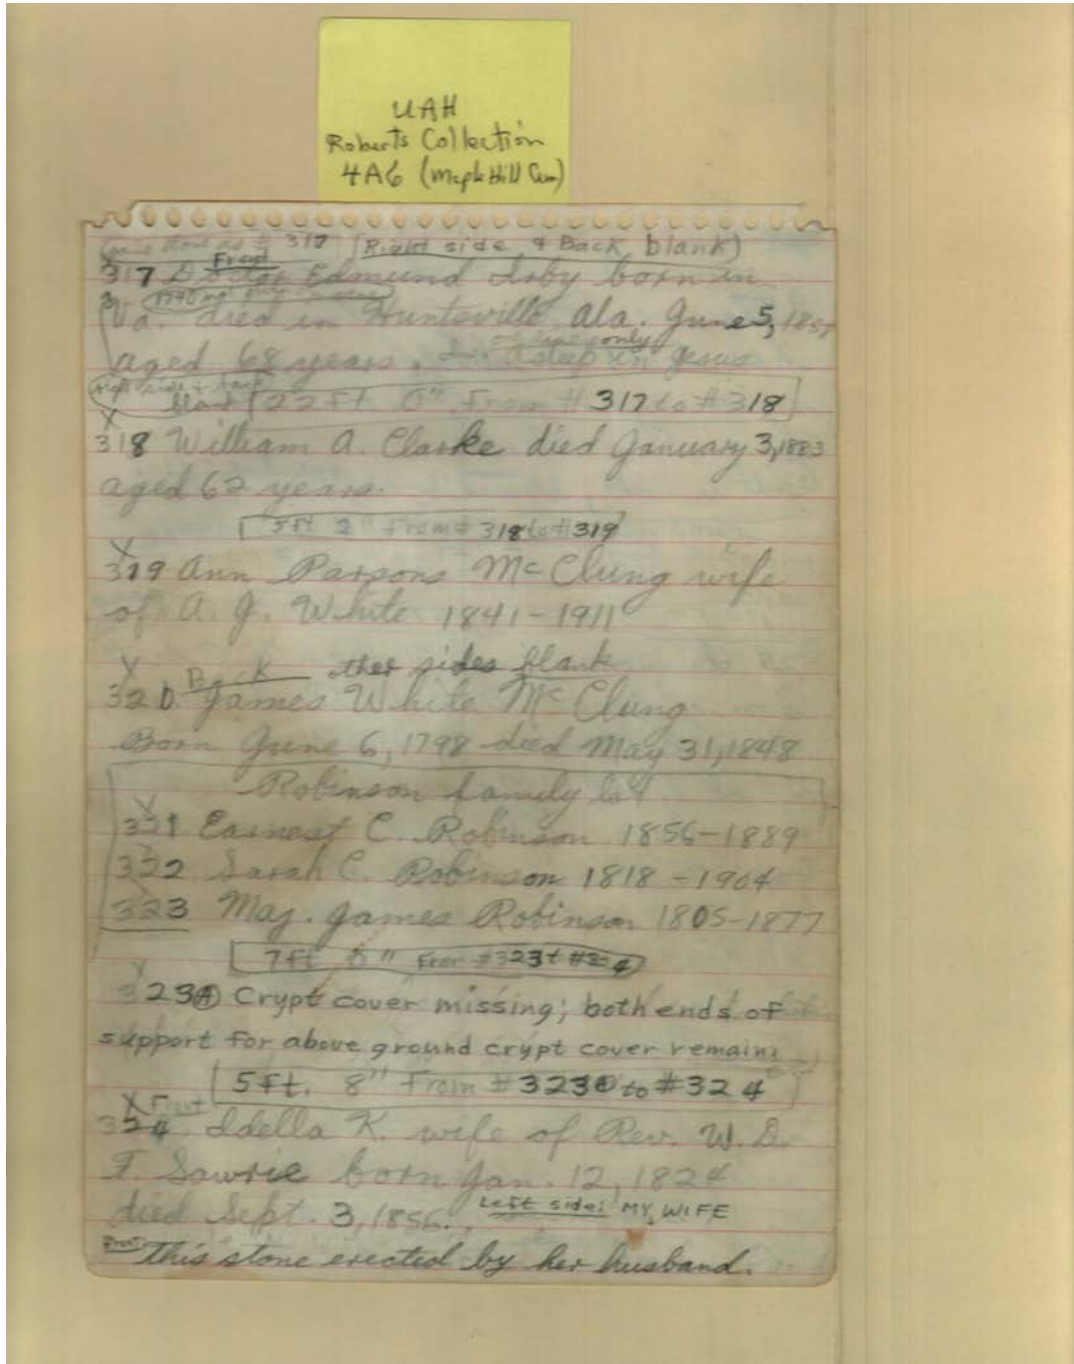 UAH
Roberts Collection
4A6 (Maple Hill Cem)
# 317 (Right side & Back blank)
Front
317 Doctor Edmund Irby born in
Va. died in Huntsville Ala. June 5, 1857
on line only
aged 68 years. asleep in Jesus
right side & back
blank [22 ft 0" From # 317 to # 318]
X
318 William A. Clarke died January 3, 1883
aged 62 years.
[5 ft 2" From # 318 to # 319]
X
319 Ann Parsons McClung wife
of A. J. White 1841-1911
X Back other sides blank
320 James White McClung
Born June 6, 1798 died May 31, 1848
Robinson family lot
X
321 Earnest C. Robinson 1856-1889
322 Sarah C. Robinson 1818-1904
323 Maj. James Robinson 1805-1877
[7 ft 6" From #323 t #324]
X
323A Crypt cover missing; both ends of
support for above ground crypt cover remain
[5 ft. 8" From # 323A to # 324]
X Front
324 Idella K. wife of Rev. W. D.
F. Sawrie born Jan. 12, 1824
died Sept. 3, 1856. Left side: MY WIFE
Front: This stone erected by her husband.